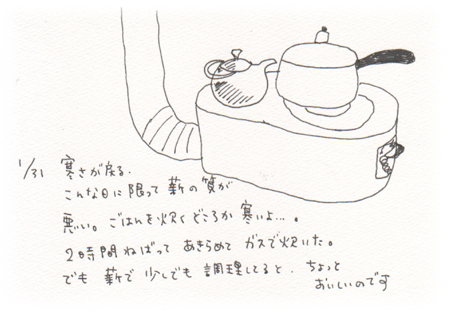 1/31 寒さが戻る.
こんな日に限って 薪の質が
悪い。ごはんを炊くどころか 寒いよ…。
2時間ねばって あきらめて ガスで炊いた。
でも 薪で 少しでも 調理してると、ちょっと
おいしいのです